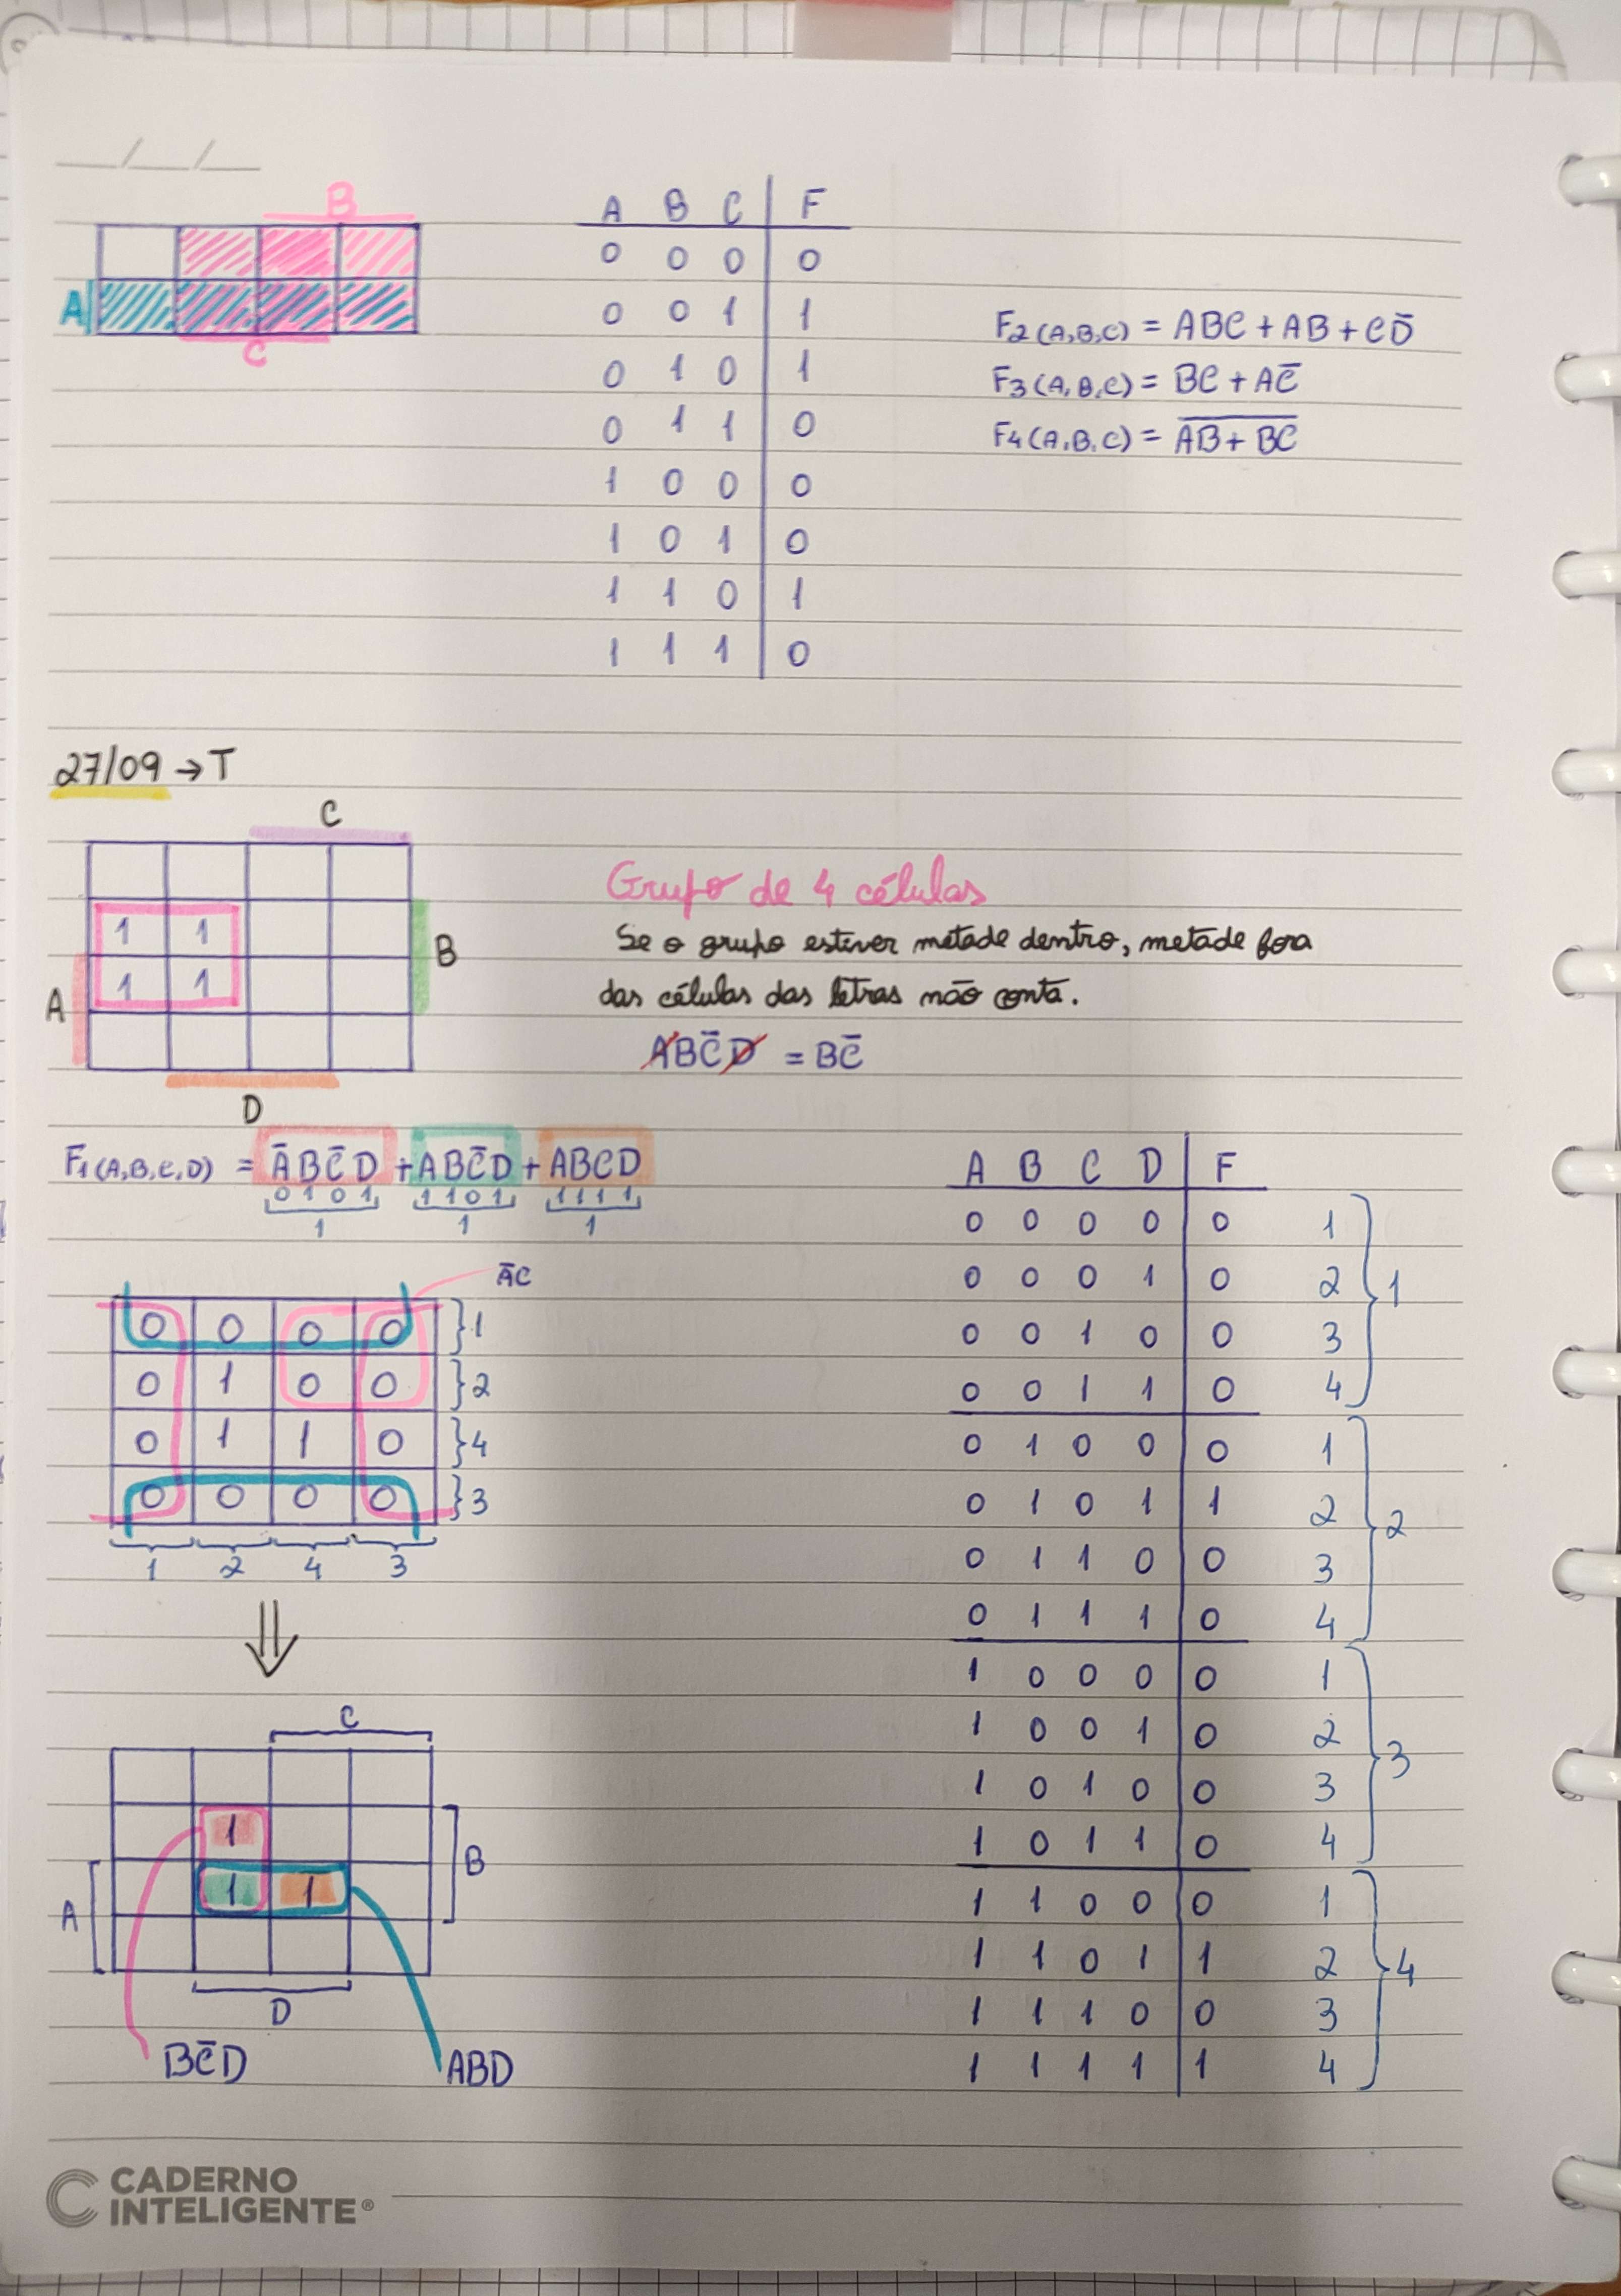 __/__/__
B
A
C
A B C | F
0 0 0 | 0
0 0 1 | 1
0 1 0 | 1
0 1 1 | 0
1 0 0 | 0
1 0 1 | 0
1 1 0 | 1
1 1 1 | 0
F2(A,B,C) = ABC + AB + CD̄
F3(A,B,C) = BC + AC̄
F4(A,B,C) = A̅B̅ ̅+̅ ̅B̅C̅
27/09 → T
C
1 1
B
1 1
A
D
Grupo de 4 células
Se o grupo estiver metade dentro, metade fora
das células das letras não conta.
ABC̄D = BC̄
F1(A,B,C,D) = ĀBC̄D + ABC̄D + ABCD
0101 1101 1111
1 1 1
ĀC
0 0 0 0 }1
0 1 0 0 }2
0 1 1 0 }4
0 0 0 0 }3
1 2 4 3
⇓
C
1
B
1 1
A
D
BC̄D ABD
A B C D | F
0 0 0 0 | 0 1
0 0 0 1 | 0 2 }1
0 0 1 0 | 0 3
0 0 1 1 | 0 4
0 1 0 0 | 0 1
0 1 0 1 | 1 2 }2
0 1 1 0 | 0 3
0 1 1 1 | 0 4
1 0 0 0 | 0 1
1 0 0 1 | 0 2 }3
1 0 1 0 | 0 3
1 0 1 1 | 0 4
1 1 0 0 | 0 1
1 1 0 1 | 1 2 }4
1 1 1 0 | 0 3
1 1 1 1 | 1 4
CADERNO
INTELIGENTE®